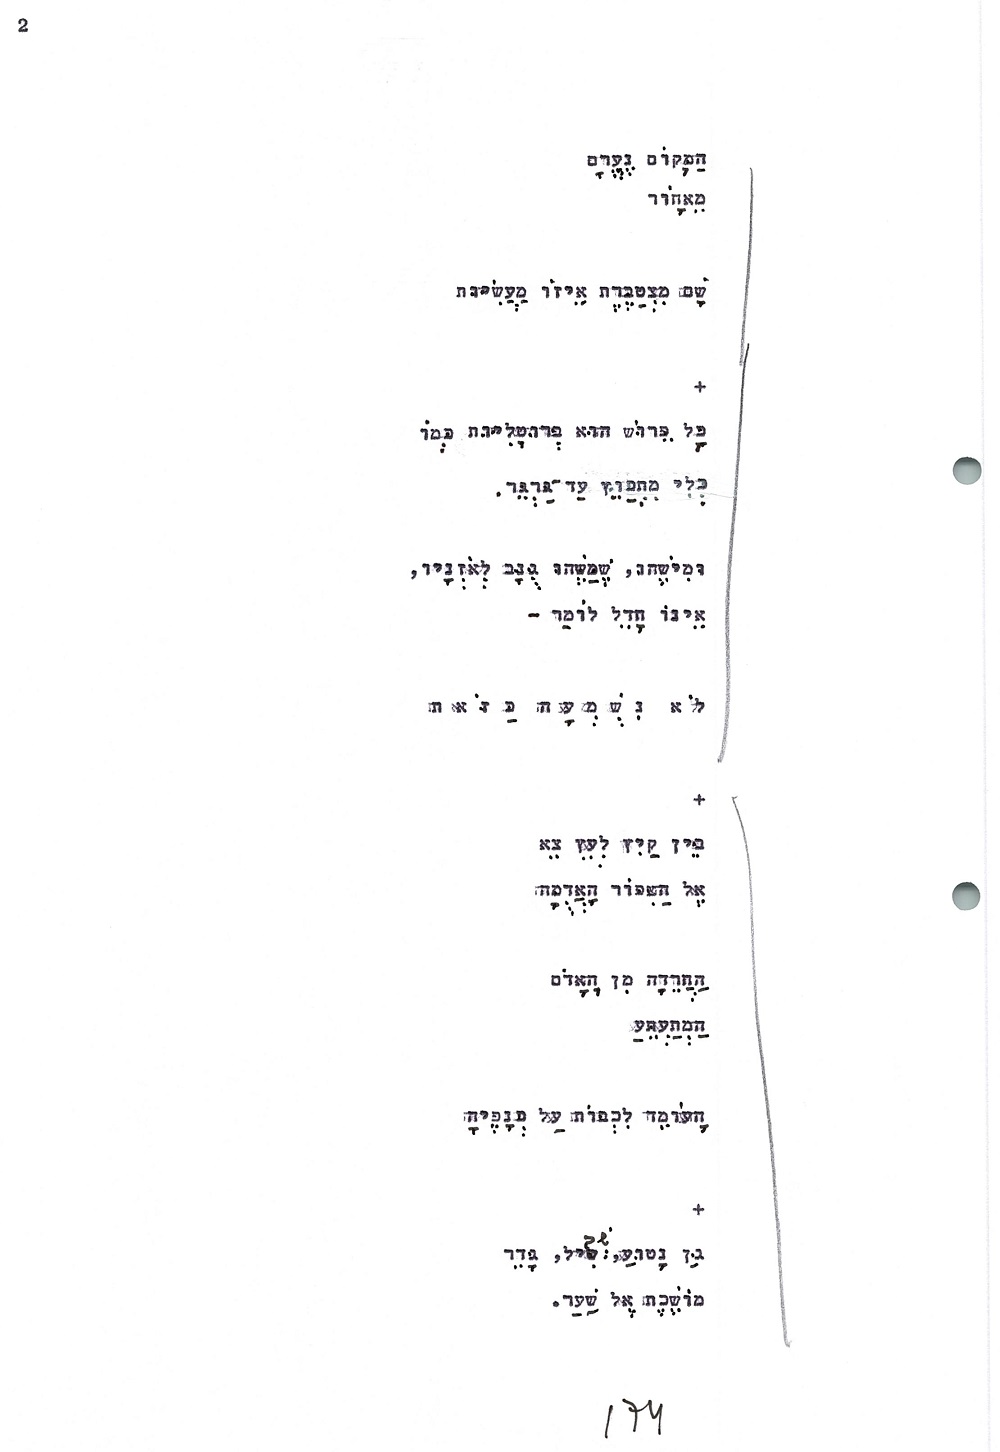 2
הַמָּקוֹם נֶעֱדָּם
מֵאָחוֹר
שָׁם מִצְטַבֶּרֶת אֵיזוֹ מַעֲשִׂיּוּת
+
כָּל פֵּרוּשׁ הוּא בְּרוּטָלִיּוּת כְּמוֹ
כְּלִי מִתְפּוֹצֵץ עַד־גַּרְגֵּר.
וּמִישֶׁהוּ, שֶׁמַּשֶּׁהוּ גֻּנַּב לְאֹזְנָיו,
אֵינוֹ חָדֵל לוֹמַר -
לֹא נִשְׁמְעָה כַּזֹּאת
+
בֵּין קַיִץ לְעֵץ צֵא
אֶל הַצִּפּוֹר הָאֲדֻמָּה
הַחֲרֵדָה מִן הָאָדֹם
הַמְתַעְתֵּעַ
הָעוֹמֵד לִכְפּוֹת עַל כְּנָפֶיהָ
+
גַּן נָטוּעַ, שְׁקִיל, גָּדֵר
מוֹשֶׁכֶת אֶל שַׁעַר.
174